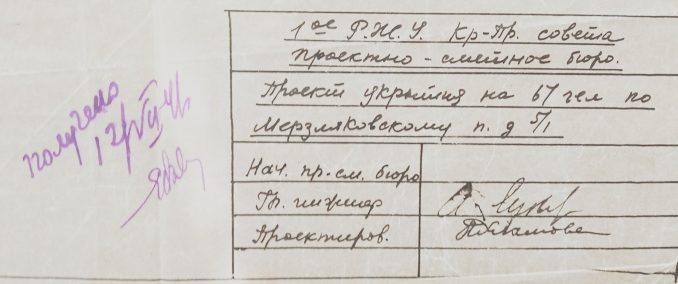 1ое Р.Ж.У. Кр-Пр. совета
проектно-сметное бюро.
Проект укрытия на 67 чел по
Мерзляковскому п. д 5/1
Нач. пр-см. бюро
Гл. инженер
Проектиров.
получено